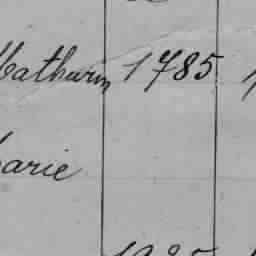 Mathurin 1785
Marie